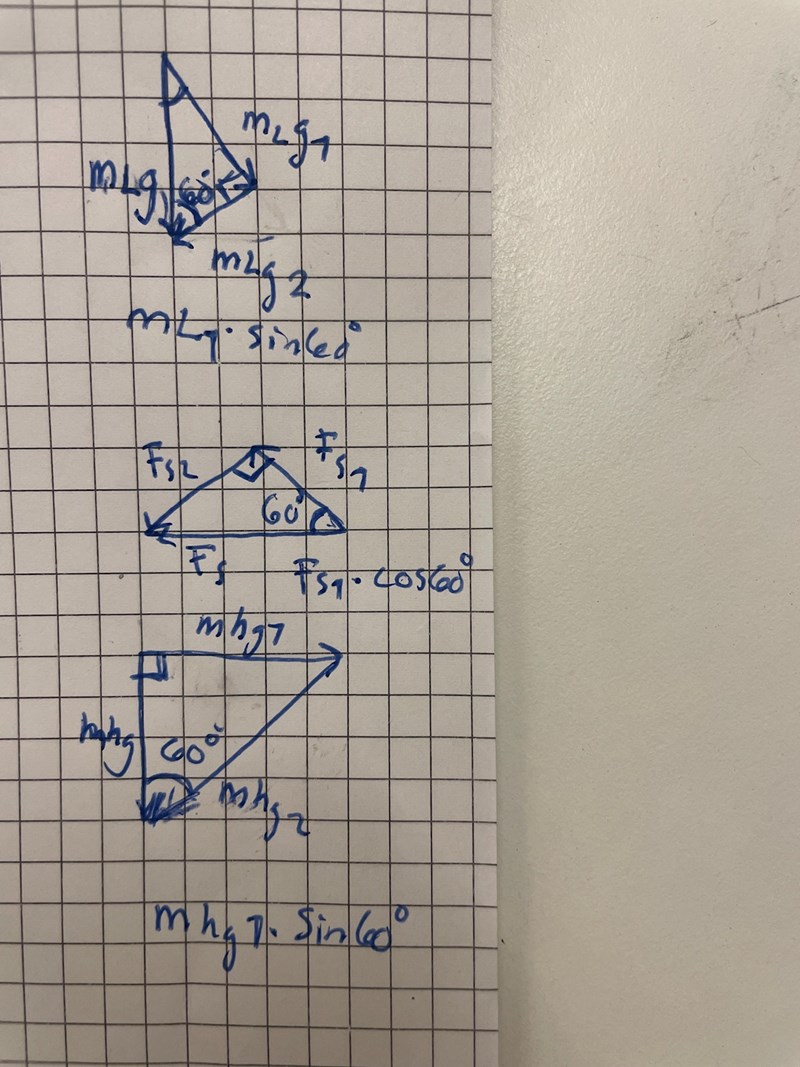 mLg1
mLg
60°
mLg2
mL1 · sin60°
Fs2
Fs1
60°
Fs
Fs1 · cos60°
mhg1
mhg
60°
mhg2
mhg1 · sin60°